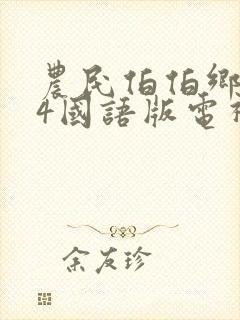 農民伯伯鄉
4國語版電視
余友珍